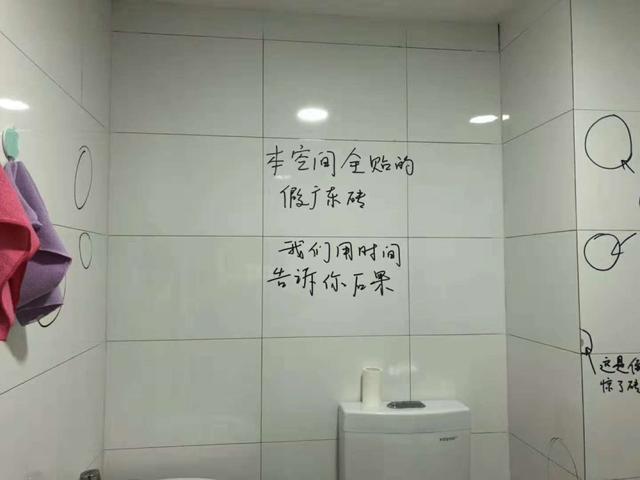 本空间全贴的
假广东砖
我们用时间
告诉你后果
这是
惊了砖